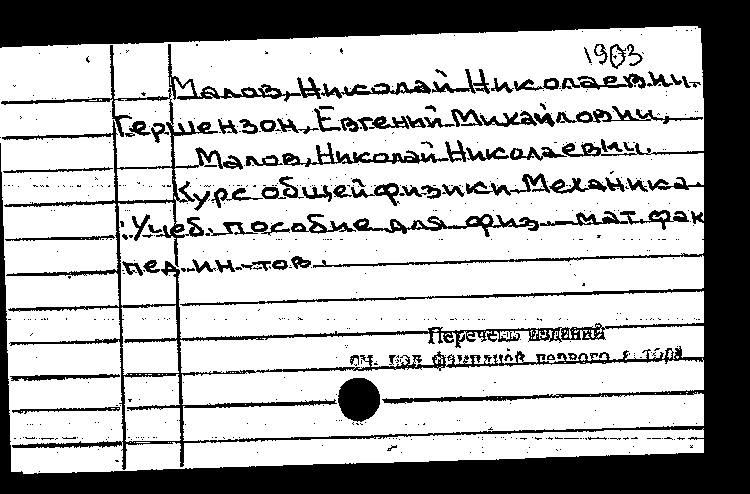 1903
Малов, Николай Николаевич.
Гершензон, Евгений Михайлович,
Малов, Николай Николаевич.
Курс общей физики. Механика.
: Учеб. пособие для физ. - мат. фак
пед. ин.-тов.
Перечень изданий
см. под фамилией первого автора